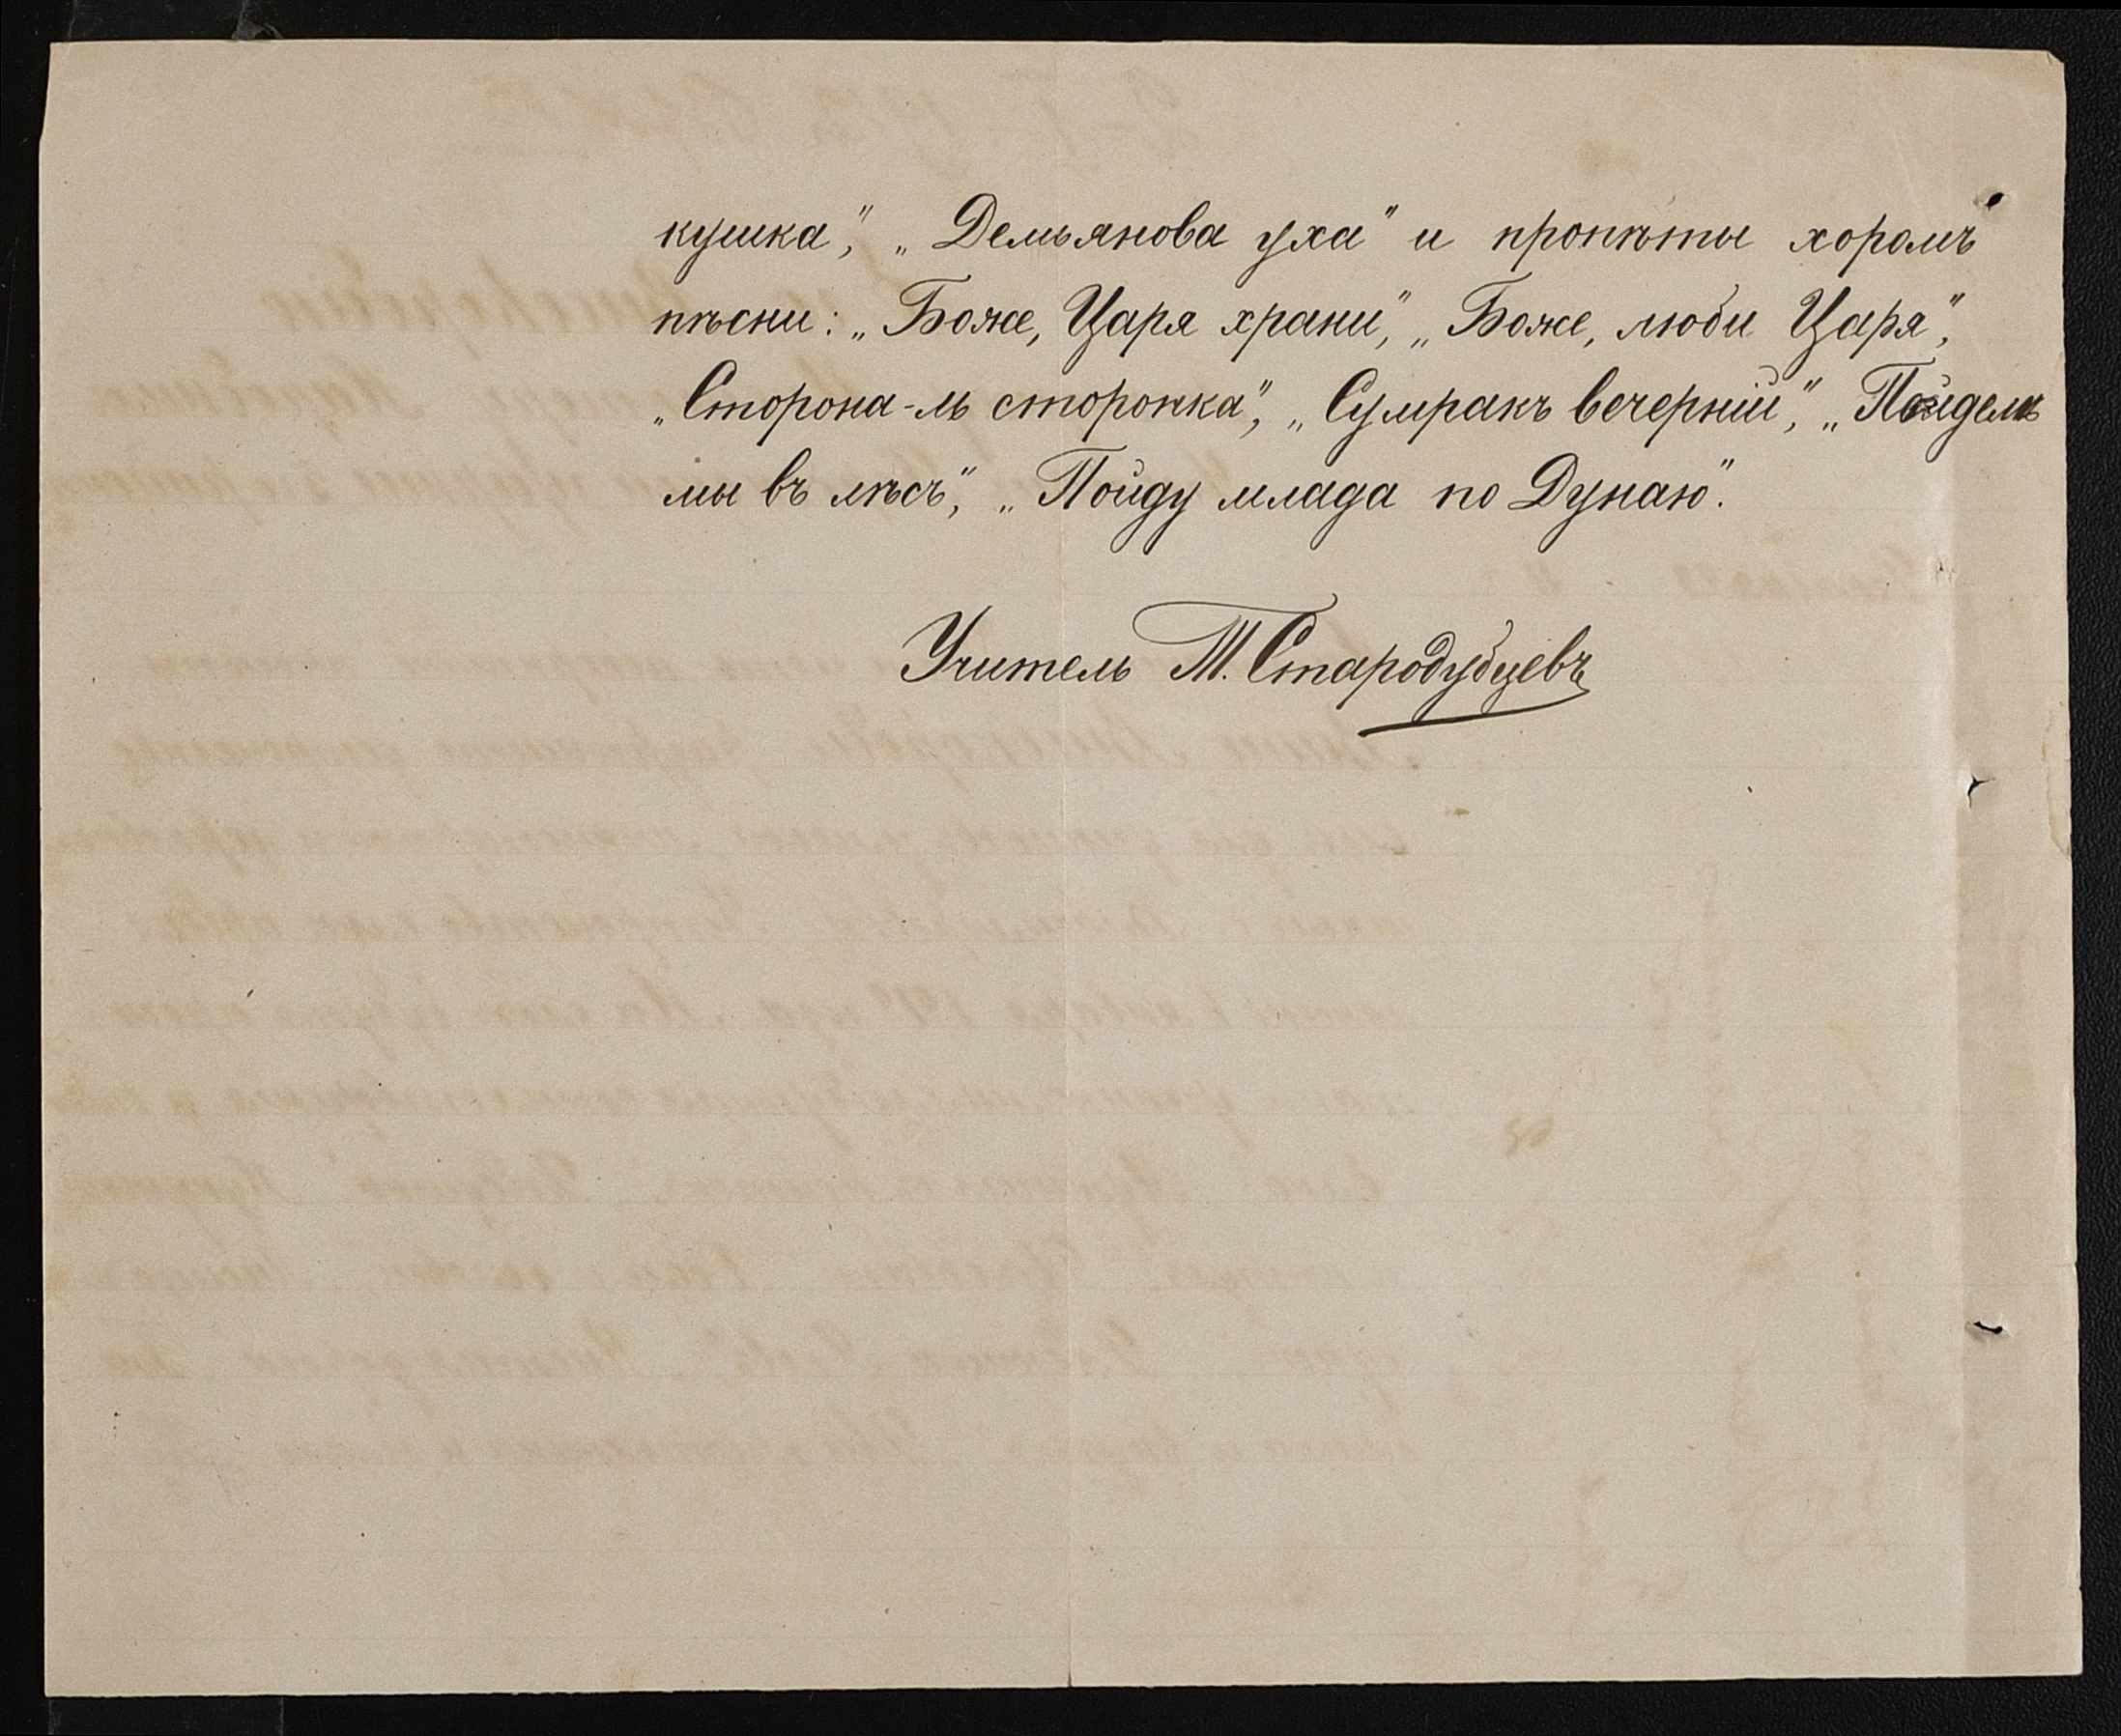 кушка", „Демьянова уха" и пропѣты хоромъ
пѣсни: „Боже, Царя храни", „Боже, люби Царя",
„Сторона-ль сторонка", „Сумракъ вечерній", „Пойдемъ
мы въ лѣсъ", „Пойду млада по Дунаю".
Учитель Т. Стародубцевъ